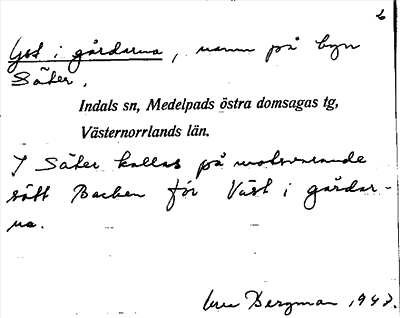 Öst i gårdarna, namn på byn
Säter.
Indals sn, Medelpads östra domsagas tg,
Västernorrlands län.
I Säter kallas på motsvarande
sätt Backen för Väst i gårdar-
na.
Bergman, 1943.